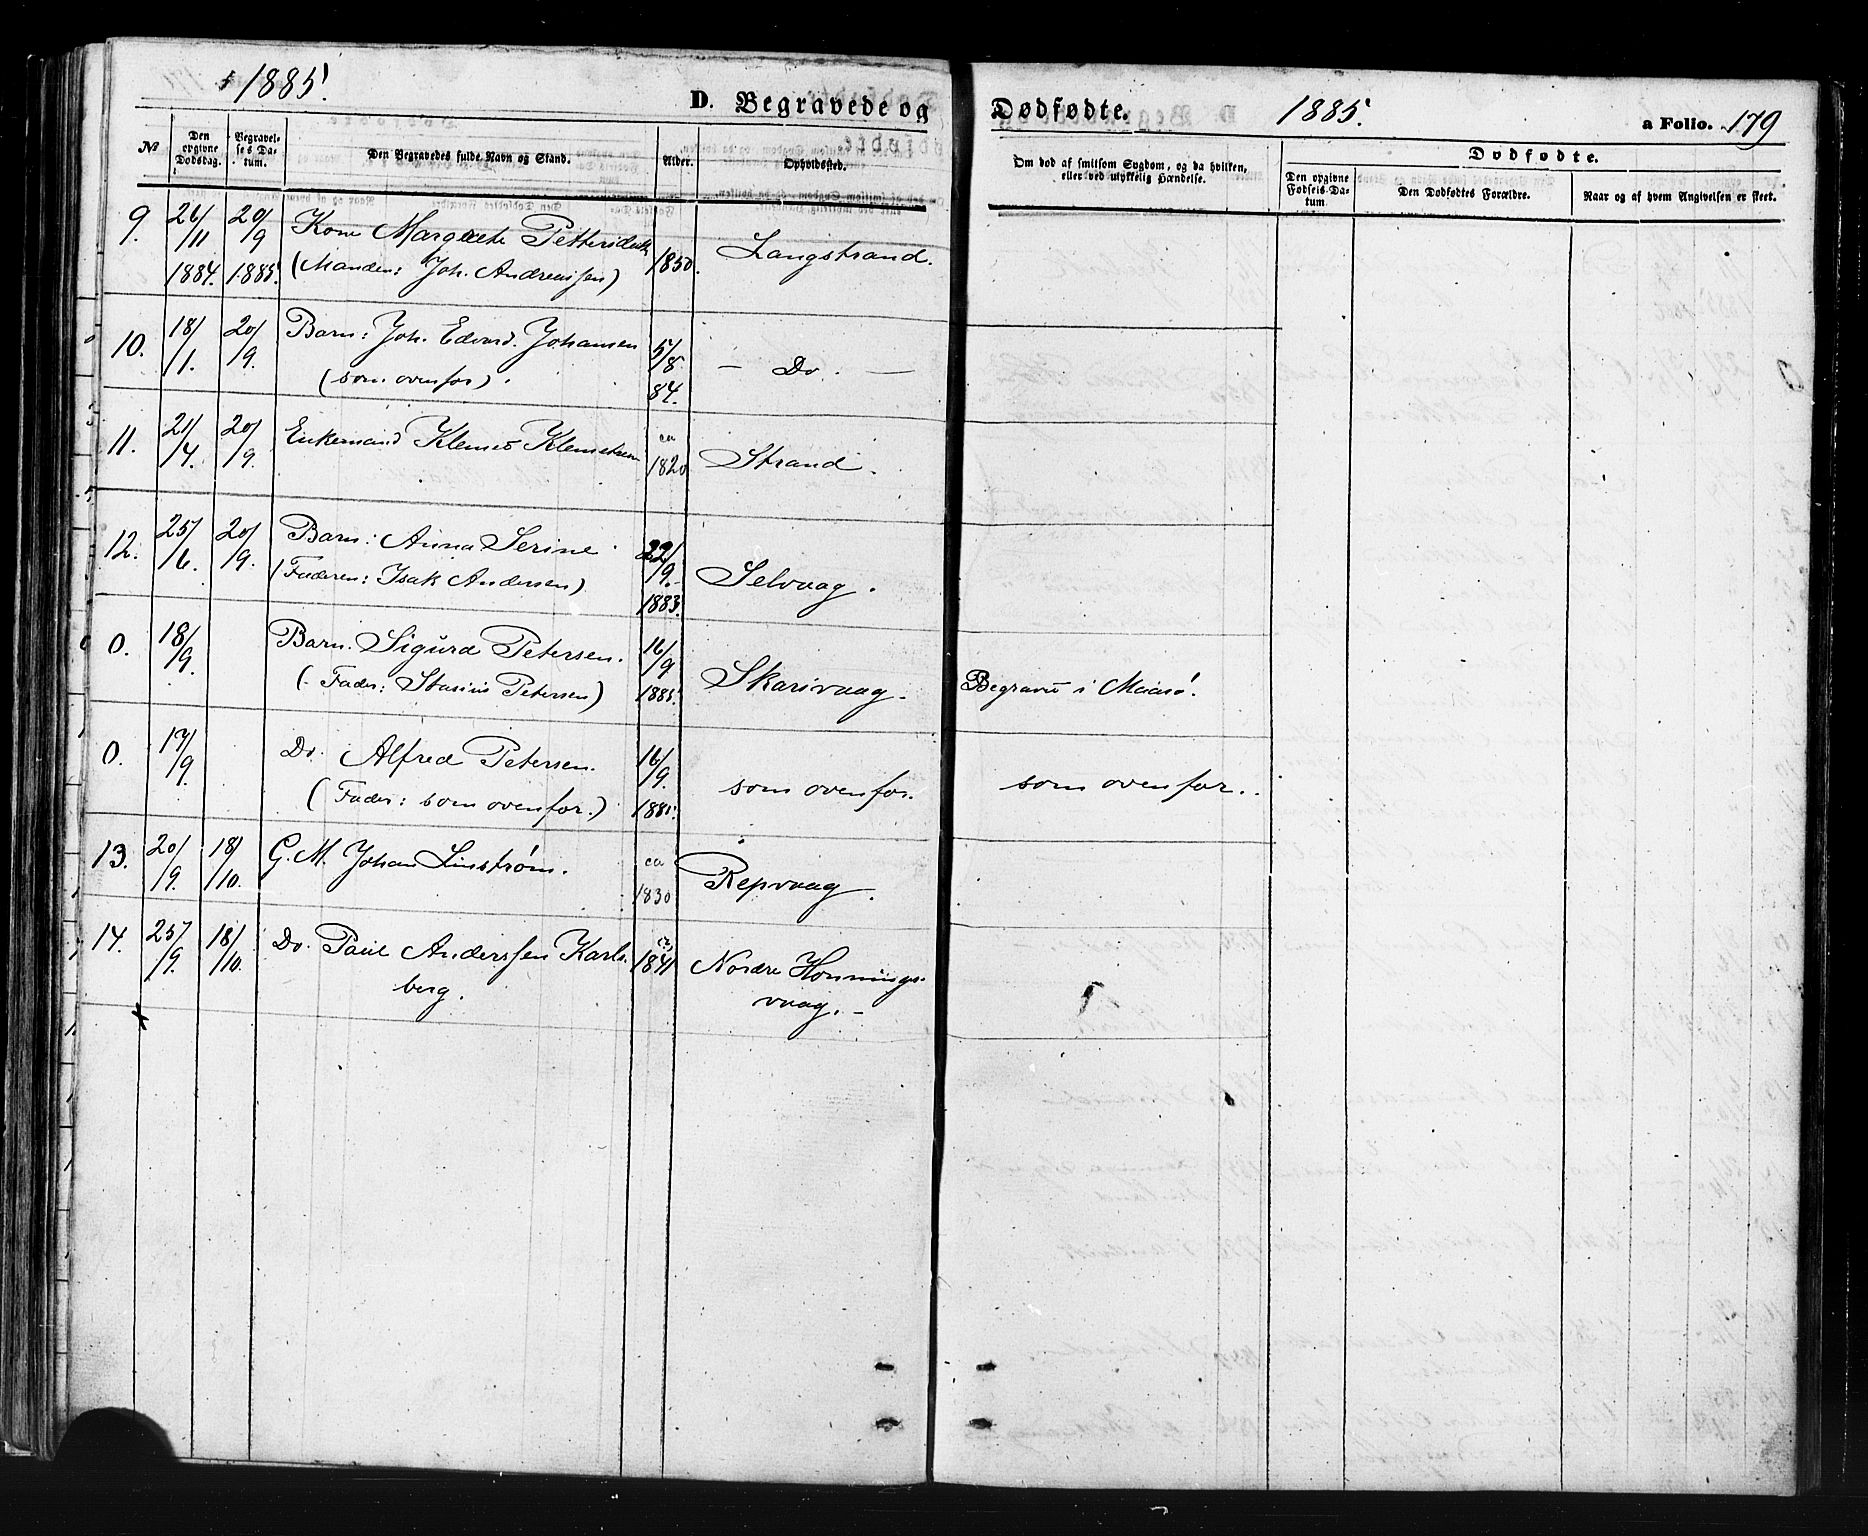 1885.
D. Begravede og
Dødfødte.
1885.
a Folio. 179
№
Den opgivne Dødsdag.
Begravelses Datum.
Den Begravedes fulde Navn og Stand.
Alder.
Opholdssted.
Om død af smitsom Sygdom, og da hvilken, eller ved ulykkelig Hændelse.
Dødfødte.
Den opgivne Fødsels-Datum
Den Dødfødtes Forældre.
Naar og af hvem Angivelsen er skeet.
9. 26/11 1884. 20/9 1885. Kone Margrethe 1850. Langstrand.
(Manden: Joh. Andreassen)
10. 18/1. 20/9. Barn: Joh. Edvard. Johansen 5/8 84. — Do. —
(som ovenfor).
11. 21/4. 20/9. Enkemand Klemet Klemetsen ca 1820 Strand.
12. 25/6. 20/9. Barn: Anna Serine. 22/9. 1883. Selvaag.
(Faderen: Isak Andersen)
0. 18/9. Barn. Sigurd Petersen. 16/9 1885. Skarsvaag. Begravet i Maasø.
(Fader: Petersen)
0. 17/9. Do. Alfred Petersen. 16/9. 1885. som ovenfor. som ovenfor.
(Fader: som ovenfor.)
13. 20/9. 18/10. G. M. Johan Linstrøm. ca 1830 Repvaag.
14. 25/9. 18/10. Do. Paul Anderssen Karls- (?) 1841 Nordre Honnings-
berg. vaag. —